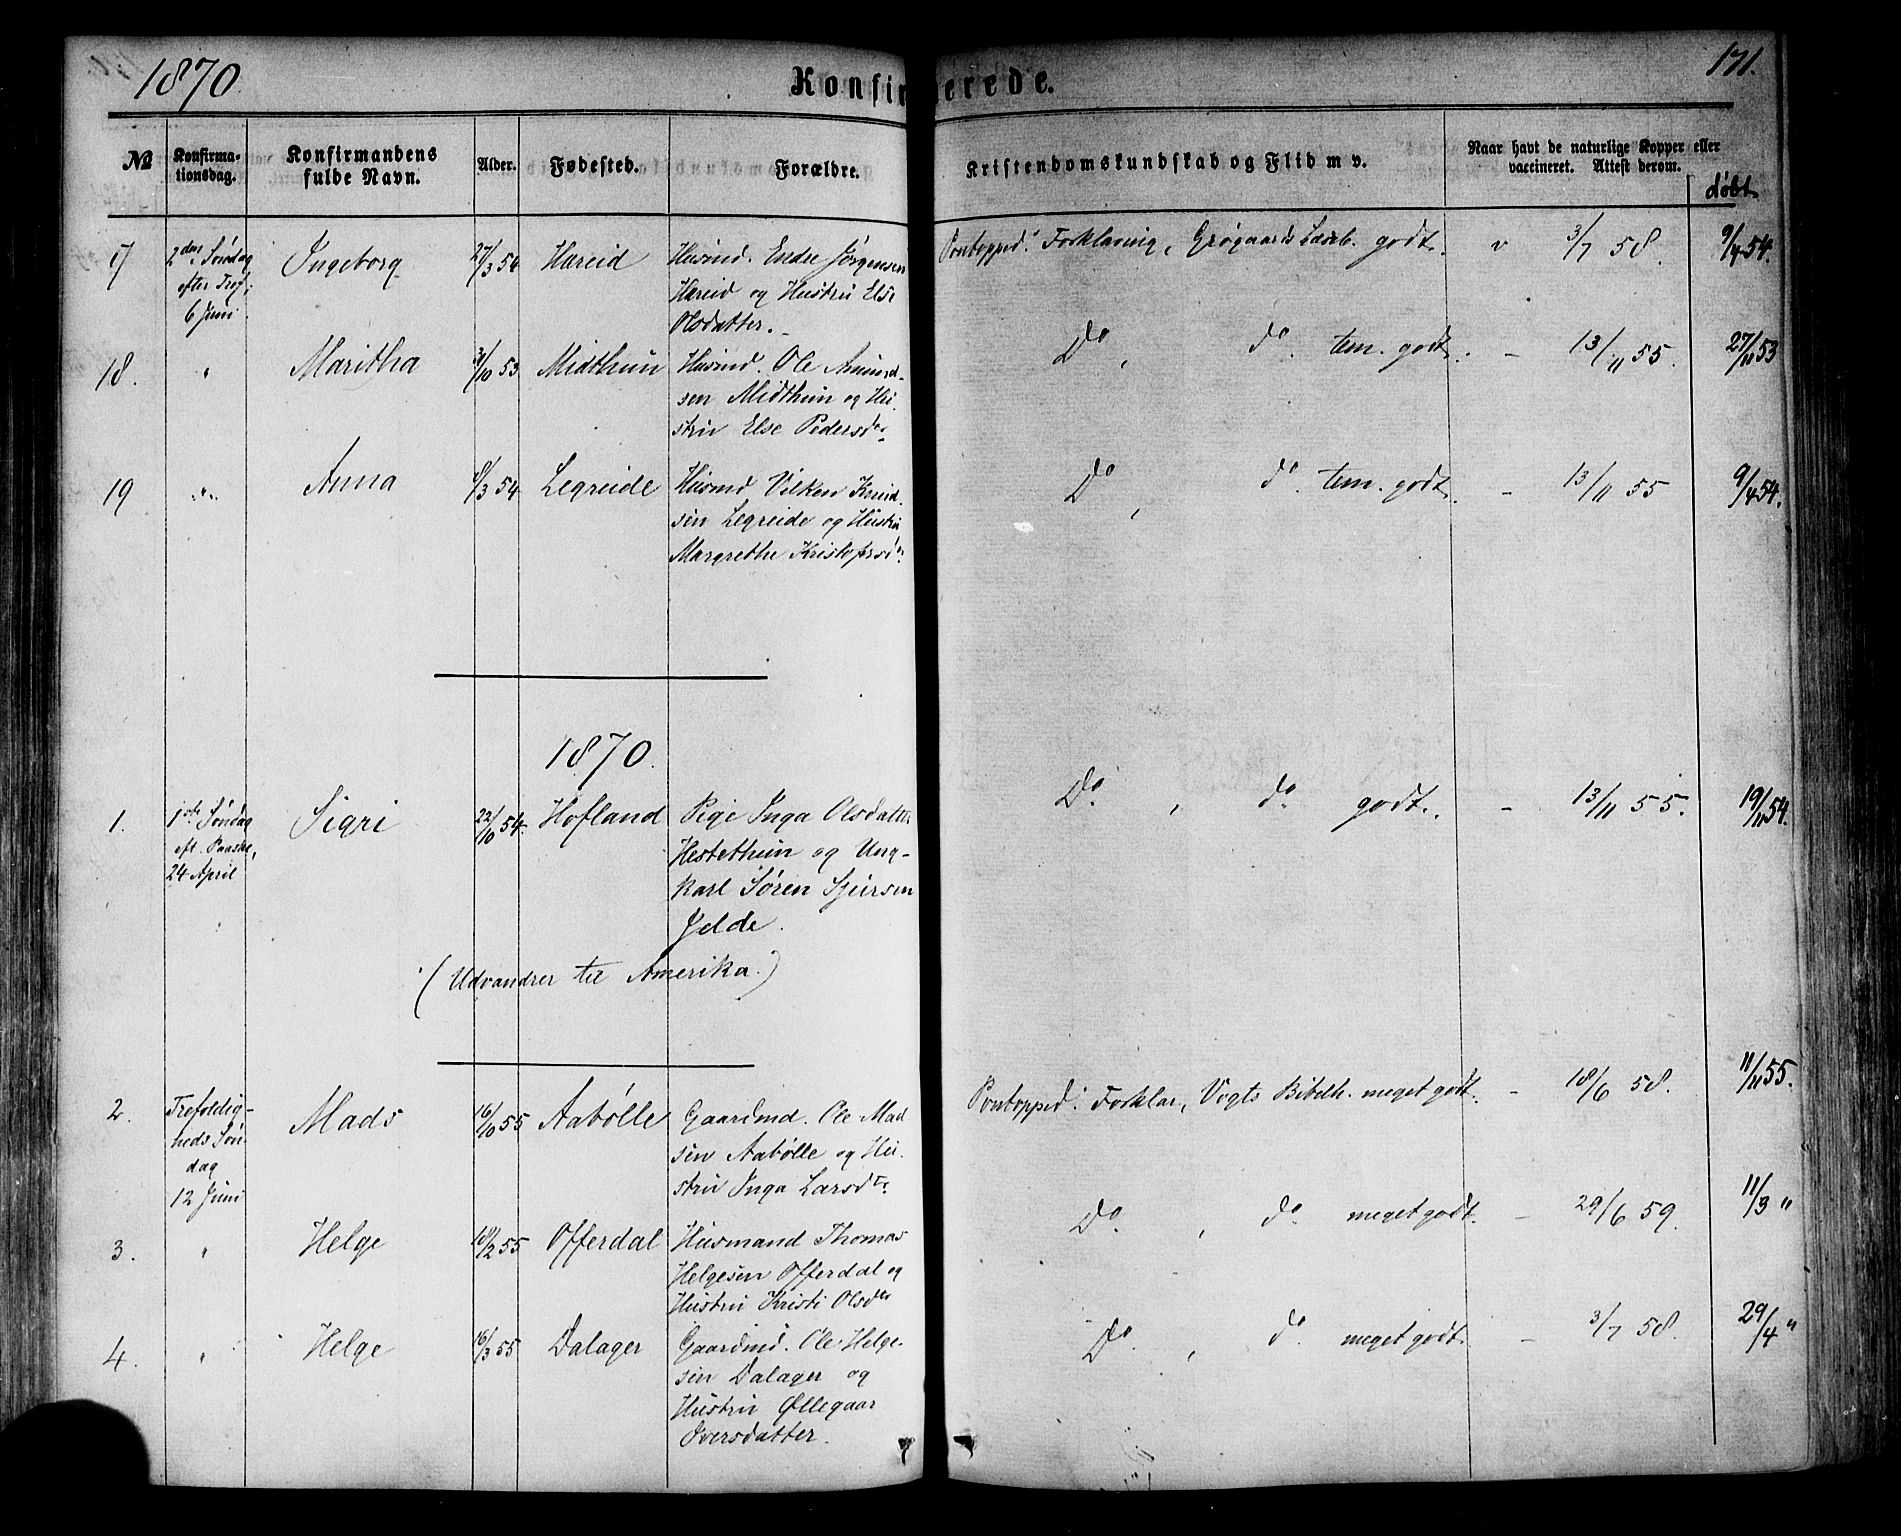 1870.
Konfirmerede.
171.
№
Konfirma-
tionsdag.
Konfirmandens
fulde Navn.
Alder.
Fødested.
Forældre.
Kristendomskundskab og Flid m v.
Naar havt de naturlige Kopper eller
vaccineret. Attest derom.
døbt
17 2den Søndag Ingeborg 27/3 54 Hareid Husmd. Endre Jørgensen Pontopped: Forklaring, Grøgaards Læseb. godt. v 3/7 58. 9/4 54.
efter Tref: Hareid og Hustru Else
6 Juni Olsdatter.
18. " Maritha 31/10 53 Midthun Husmd. Ole Amund- Do, do. tem. godt. - 13/11 55. 27/11 53
sen Midthun og Hu-
stru Else Pedersdtr
19 " Anna 8/3 54 Legreide Husmd Vilken Knud- Do, do. tem. godt. - 13/11 55 9/4 54.
sen Legreide og Hustru
Margrethe Kristofersdr
1870.
1. 1ste Søndag Sigri 22/10 54. Hofland Pige Inga Olsdatter Do. , do. godt. - 13/11 55. 19/11 54.
eft. Paaske, Hestethun og Ung-
24 April karl Søren Sjursen
Jelde.
(Udvandrer til Amerika.)
2. Trefoldig- Mads 16/10 55 Aabølle Gaardmd. Ole Mad Pontopped: Forklar, Vogts Bibelh. meget godt. - 18/6 58. 11/11 55.
heds Søn- sen Aabølle og Hu-
dag stru Inga Larsdtr
12 Juni
3. " Helge 18/2 55 Offerdal Husmand Thomas Do. , do. meget godt. - 29/6 59. 11/3 "
Helgesen Offerdal og
Hustru Kristi Olsdtr
4. " Helge 16/3 55 Dalager Gaardmd. Ole Helge- Do. , do. meget godt. - 3/7 58. 29/4 "
sen Dalager og
Hustru Øllegaar
Iversdatter.